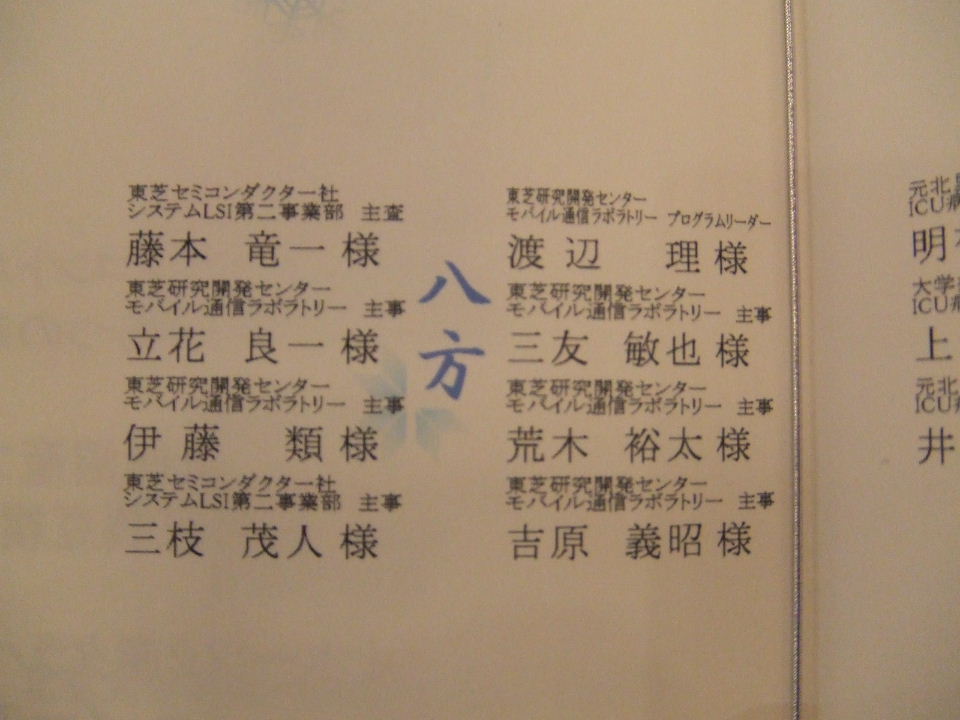 東芝セミコンダクター社
システムLSI第二事業部 主査
藤本 竜一 様
東芝研究開発センター
モバイル通信ラボラトリー 主事
立花 良一 様
東芝研究開発センター
モバイル通信ラボラトリー 主事
伊藤 類 様
東芝セミコンダクター社
システムLSI第二事業部 主事
三枝 茂人 様
八方
東芝研究開発センター
モバイル通信ラボラトリー プログラムリーダー
渡辺 理 様
東芝研究開発センター
モバイル通信ラボラトリー 主事
三友 敏也 様
東芝研究開発センター
モバイル通信ラボラトリー 主事
荒木 裕太 様
東芝研究開発センター
モバイル通信ラボラトリー 主事
吉原 義昭 様
元北
ICU病
明
大学
ICU病
上
元北
ICU病
井